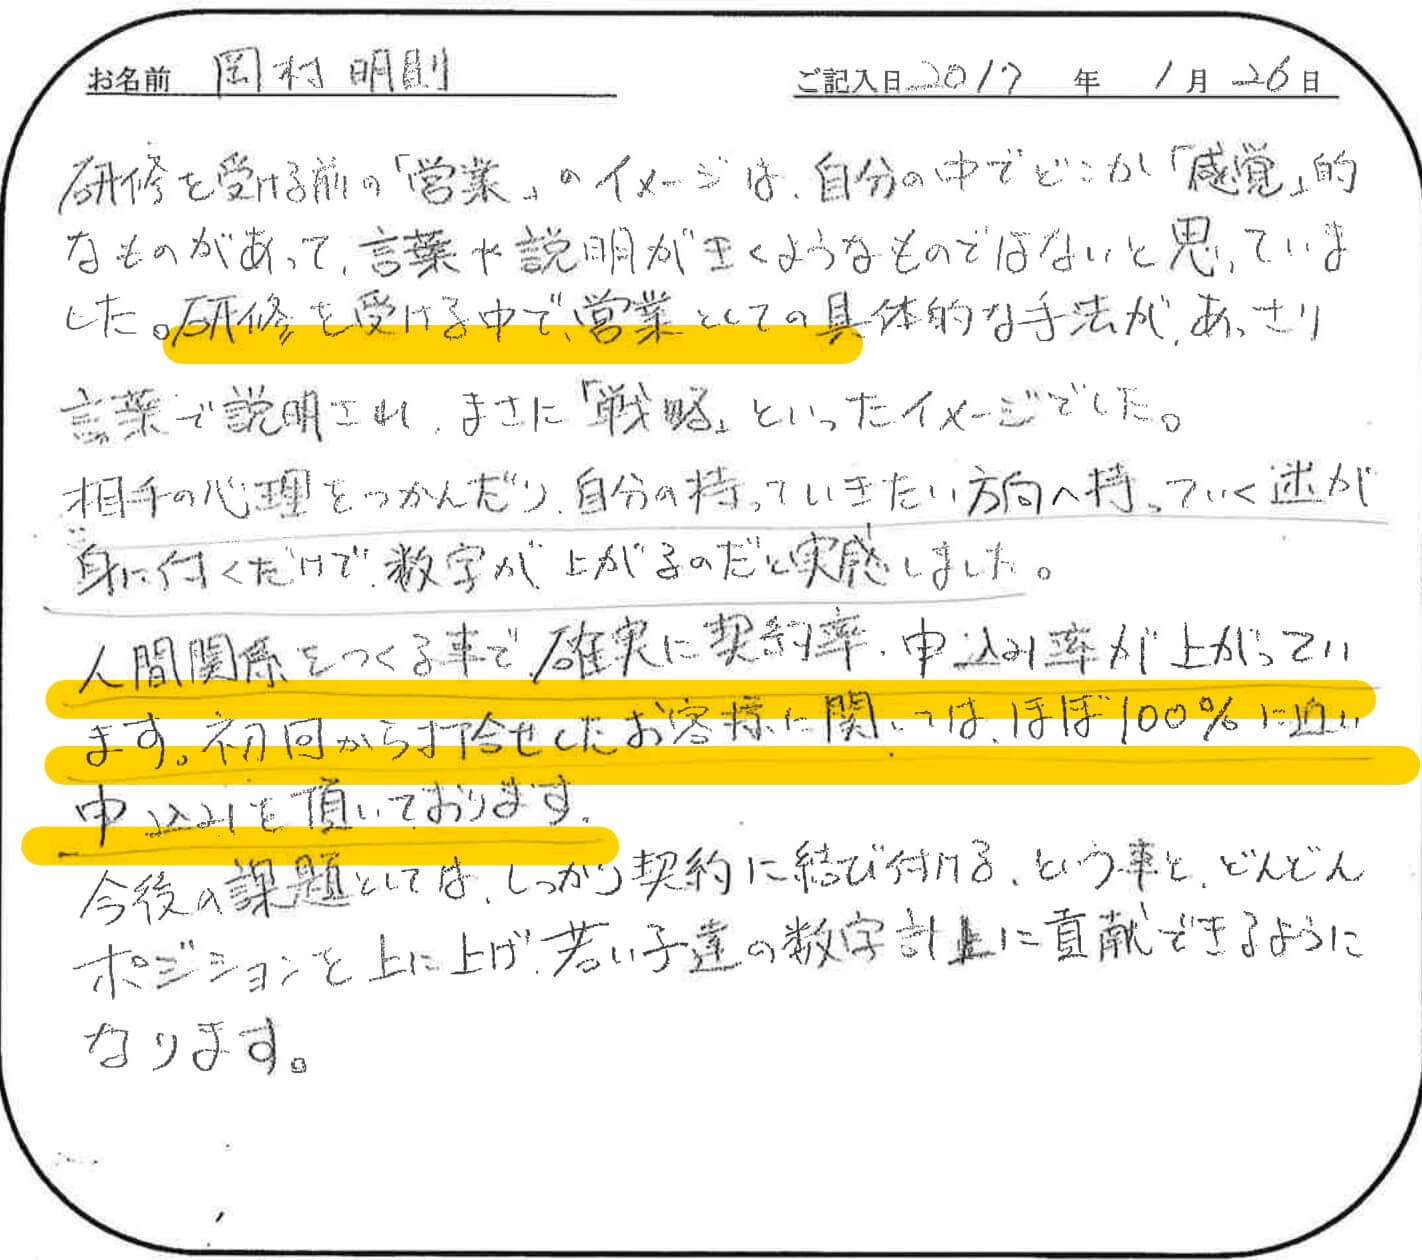 お名前 岡村 明則 ご記入日 2017 年 1 月 26 日
研修を受ける前の「営業」のイメージは、自分の中でどこか「感覚」的
なものがあって、言葉や説明が生くようなものではないと思っていま
した。研修を受ける中で、営業としての具体的な手法が、あっさり
言葉で説明され、まさに「戦略」といったイメージでした。
相手の心理をつかんだり、自分の持っていきたい方向へ持っていく述が
身に付くだけで、数字が上がるのだと実感しました。
人間関係をつくる事で、確実に契約率、申込み率が上がってい
ます。初回から打合せしたお客様に関しては、ほぼ100%に近い
申込みを頂いております。
今後の課題としては、しっかり契約に結び付ける、という事と、どんどん
ポジションを上に上げ、若い子達の数字計上に貢献できるように
なります。